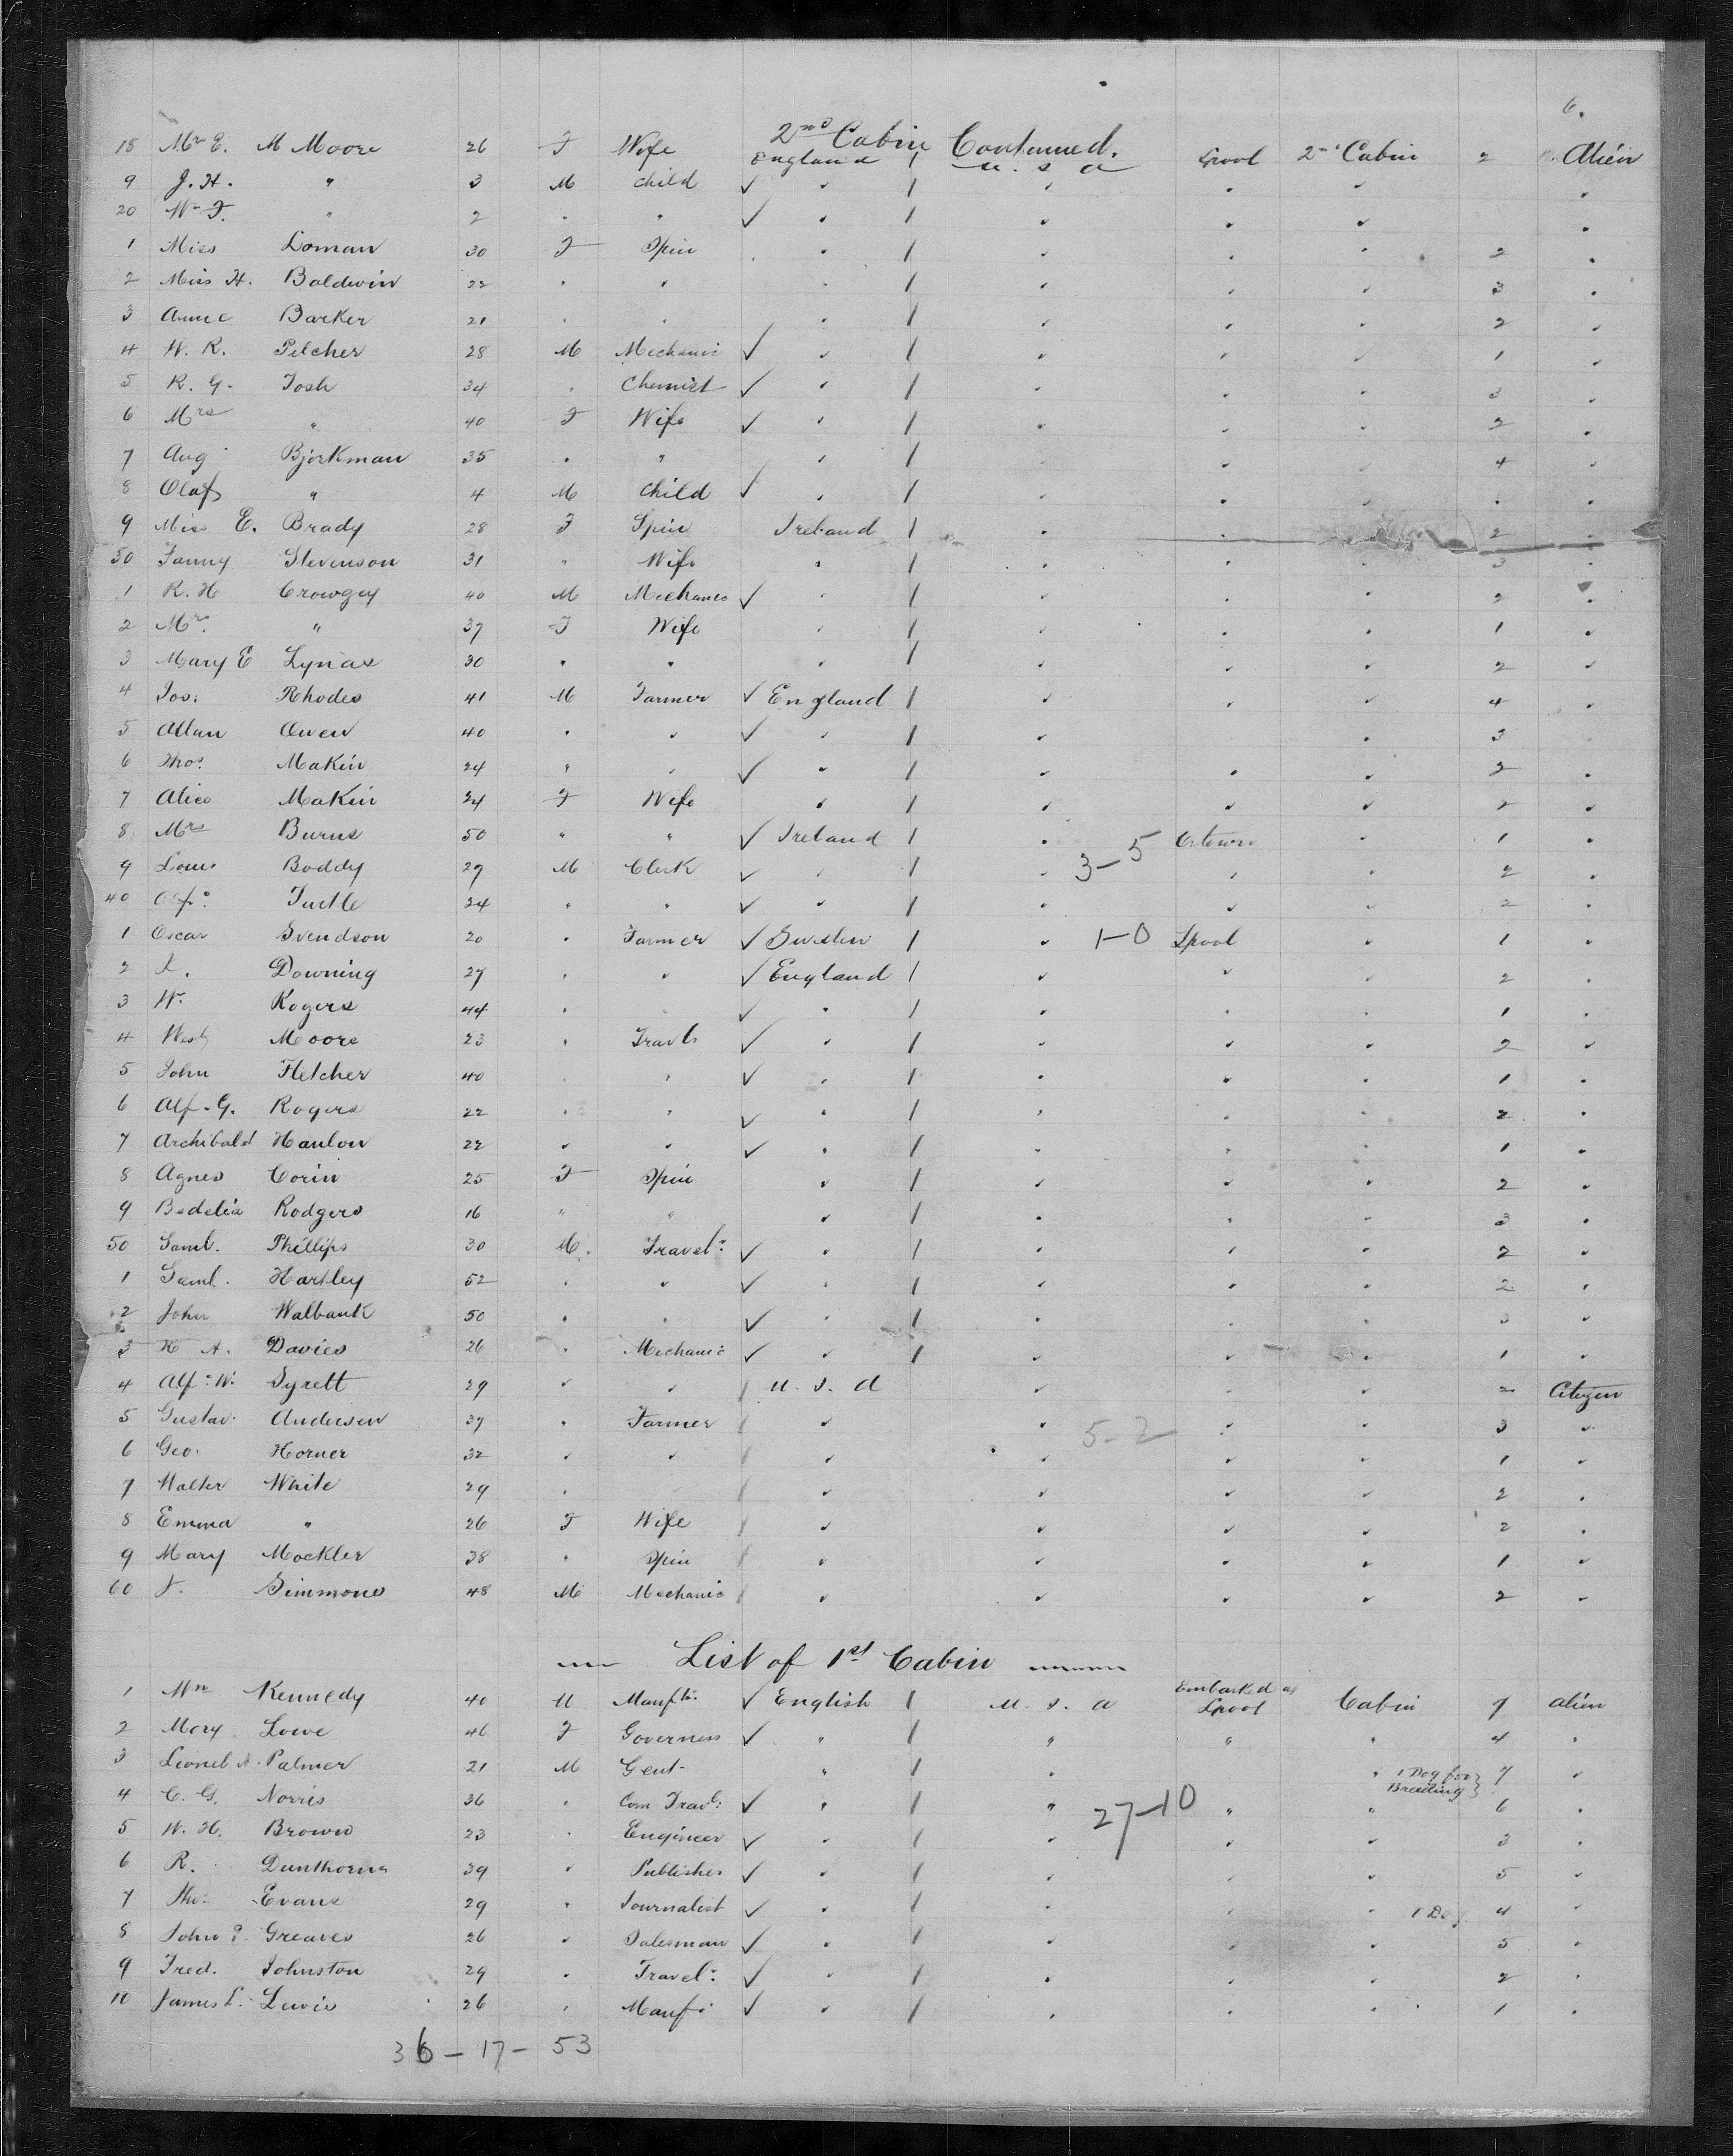 6.
2nd Cabin Continued.
18 Mrs E. M Moore 26 F Wife England / U. S. A Lpool 2nd Cabin 2 Alien
9 J. H. " 3 M Child ✓ " /
20 Wm F. " 2 " " ✓ " /
1 Miss Loman 30 F Spin " / 2
2 Miss H. Baldwin 22 " " " / 3
3 Annie Barker 21 " " " / 2
4 W. R. Pilcher 28 M Mechanic ✓ " / 1
5 R. G. Tosh 34 " Chemist ✓ " / 3
6 Mrs " 40 F Wife ✓ " / 2
7 Aug Bjorkman 35 " " " / 4
8 Olaf " 4 M Child ✓ " /
9 Miss E. Brady 28 F Spin Ireland / 2
30 Fanny Stevenson 31 " Wife " / 3
1 R. H Crowgey 40 M Mechanic ✓ " / 2
2 Mrs. " 37 F Wife " / 1
3 Mary E Lynas 30 " " " / 2
4 Jos. Rhodes 41 M Farmer ✓ England / 4
5 Allan Owen 40 " " ✓ " / 3
6 Thos. Makin 24 " " ✓ " / 2
7 Alice Makin 24 F Wife " / 2
8 Mrs Burns 50 " " ✓ Ireland / " 3-5 Qtown 1
9 Louis Boddy 27 M Clerk ✓ " / 2
40 Turtle 24 " " ✓ " / 2
1 Oscar Svendson 20 " Farmer ✓ Sweden / " 1-0 Lpool 1
2 Downing 27 " " ✓ England / 2
3 Wm Rogers 44 " " ✓ " / 1
4 Moore 23 " Travlr ✓ " / 2
5 John Fletcher 40 " " ✓ " / 1
6 Alf. G. Rogers 22 " " ✓ " / 2
7 Archibald Hanlon 22 " " ✓ " / 1
8 Agnes Corin 25 F Spin " / 2
9 Bedelia Rodgers 16 " " " / 3
50 Saml. Phillips 30 M. Travelr ✓ " / 2
1 Saml. Hartley 52 " " ✓ " / 2
2 John Walbank 50 " " ✓ " / 3
3 H A. Davies 26 " Mechanic ✓ " / 1
4 Alf. W. Tyrett 29 " " / U. S. A 2 Citizen
5 Gustav. Andersen 37 " Farmer / " 5-2 3
6 Geo. Horner 32 " " / " 1
7 Walter White 29 " " / " 2
8 Emma " 26 F Wife / " 2
9 Mary Mockler 38 " Spin / " 1
60 Simmons 48 M Mechanic / " 2
List of 1st Cabin
1 Wm Kennedy 40 M Manftr. ✓ English / U. S. A Embarked at Lpool Cabin 7 alien
2 Mary Lowe 46 F Governess ✓ " / " " " 4 "
3 Lionel A. Palmer 21 M Gent " / " " 1 Dog for Breeding } 7
4 C. G. Norris 36 " Com Travlr ✓ " / " 27-10 " " 6
5 W. H. Brown 23 " Engineer ✓ " / 3
6 R. Dunthorne 39 " Publisher ✓ " / 5
7 Tho. Evans 29 " Journalist ✓ " / 1 Dog 4
8 John P. Greaves 26 " Salesman ✓ " / 5
9 Fred. Johnston 29 " Travelr ✓ " / 2
10 James L. Lewis 26 " Manfr ✓ " / 1
36-17-53